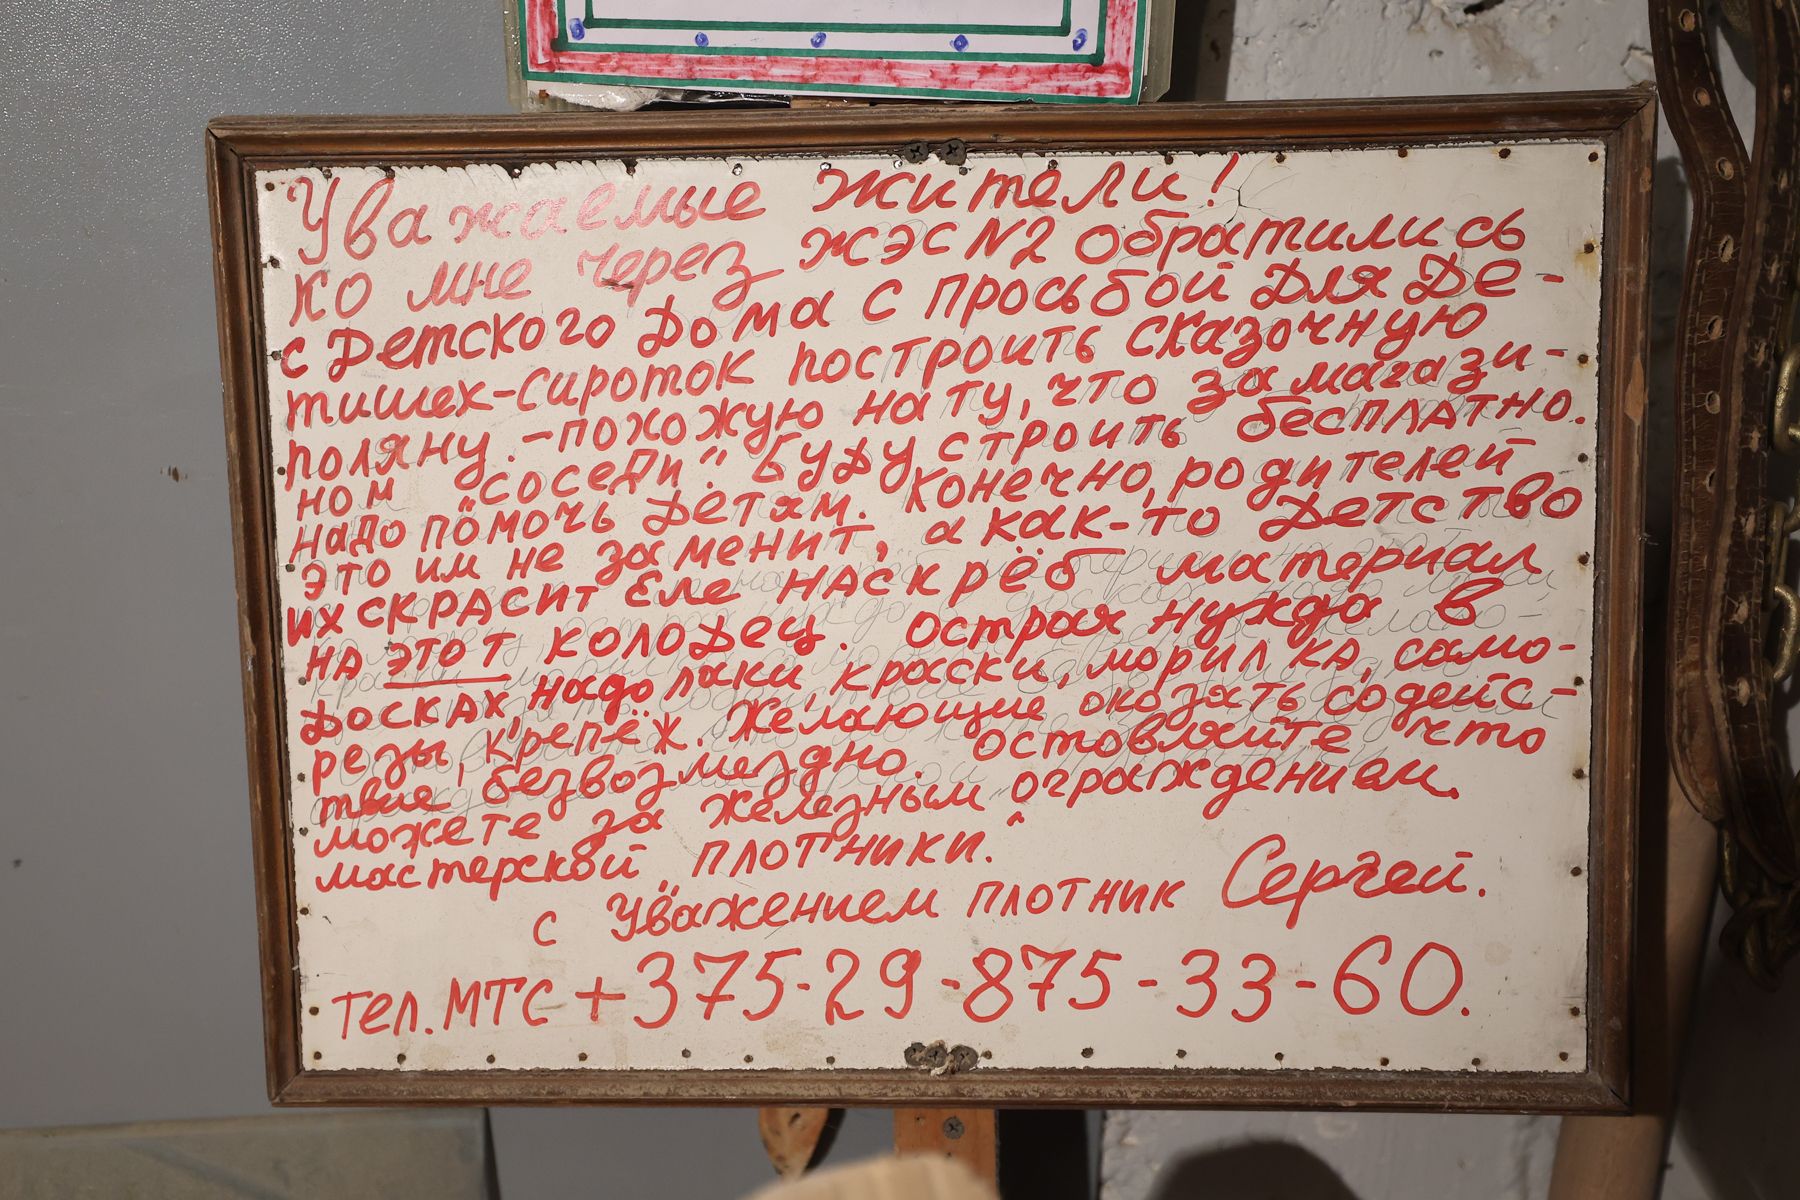 Уважаемые жители!
ко мне через ЖЭС N2 обратились
с Детского Дома с просьбой Для Де-
тишех-сироток построить сказочную
поляну.-похожую на ту, что за магази-
ном "соседи". Буду строить бесплатно.
надо помочь Детям. Конечно, родителей
это им не заменит, а как-то Детство
их скрасит Еле наскрёб материал
на этот колодец. острая нужда в
Досках, надо лаки краски, морилка, само-
резы, крепёж. Желающие оказать содейс-
твие, безвозмездно. остовляйте что
можете за железным ограждением.
мастерской "плотники".
с Уважением плотник Сергей.
тел. МТС +375-29-875-33-60.